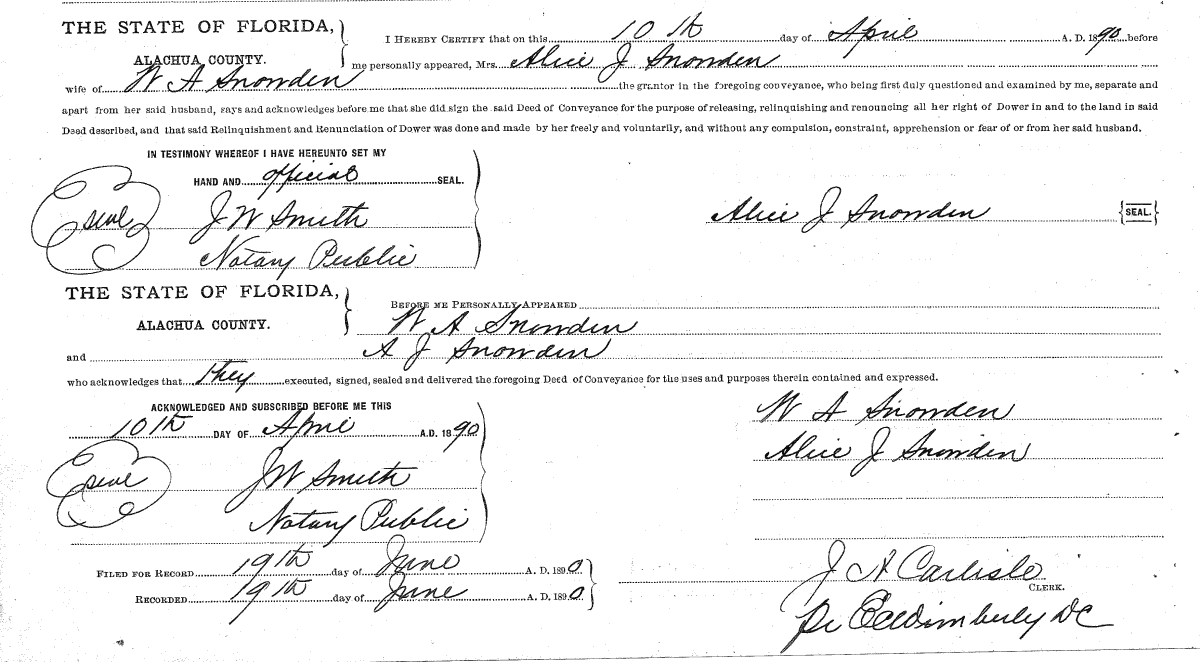 THE STATE OF FLORIDA,
ALACHUA COUNTY.
I HEREBY CERTIFY that on this 10th day of April A. D. 1890 before
me personally appeared, Mrs. Alice J Snowden
wife of W A Snowden the grantor in the foregoing conveyance, who being first duly questioned and examined by me, separate and
apart from her said husband, says and acknowledges before me that she did sign the said Deed of Conveyance for the purpose of releasing, relinquishing and renouncing all her right of Dower in and to the land in said
Deed described, and that said Relinquishment and Renunciation of Dower was done and made by her freely and voluntarily, and without any compulsion, constraint, apprehension or fear of or from her said husband.
IN TESTIMONY WHEREOF I HAVE HEREUNTO SET MY
HAND AND official SEAL.
seal J W Smith
Notary Public
Alice J Snowden {SEAL.}
THE STATE OF FLORIDA,
ALACHUA COUNTY.
BEFORE ME PERSONALLY APPEARED
W A Snowden
and A J Snowden
who acknowledges that they executed, signed, sealed and delivered the foregoing Deed of Conveyance for the uses and purposes therein contained and expressed.
ACKNOWLEDGED AND SUBSCRIBED BEFORE ME THIS
10th DAY OF April A.D. 1890
seal J W Smith
Notary Public
W A Snowden
Alice J Snowden
FILED FOR RECORD 19th day of June A. D. 1890
RECORDED 19th day of June A. D. 1890
J A Carlisle
CLERK.
Wimberly DC